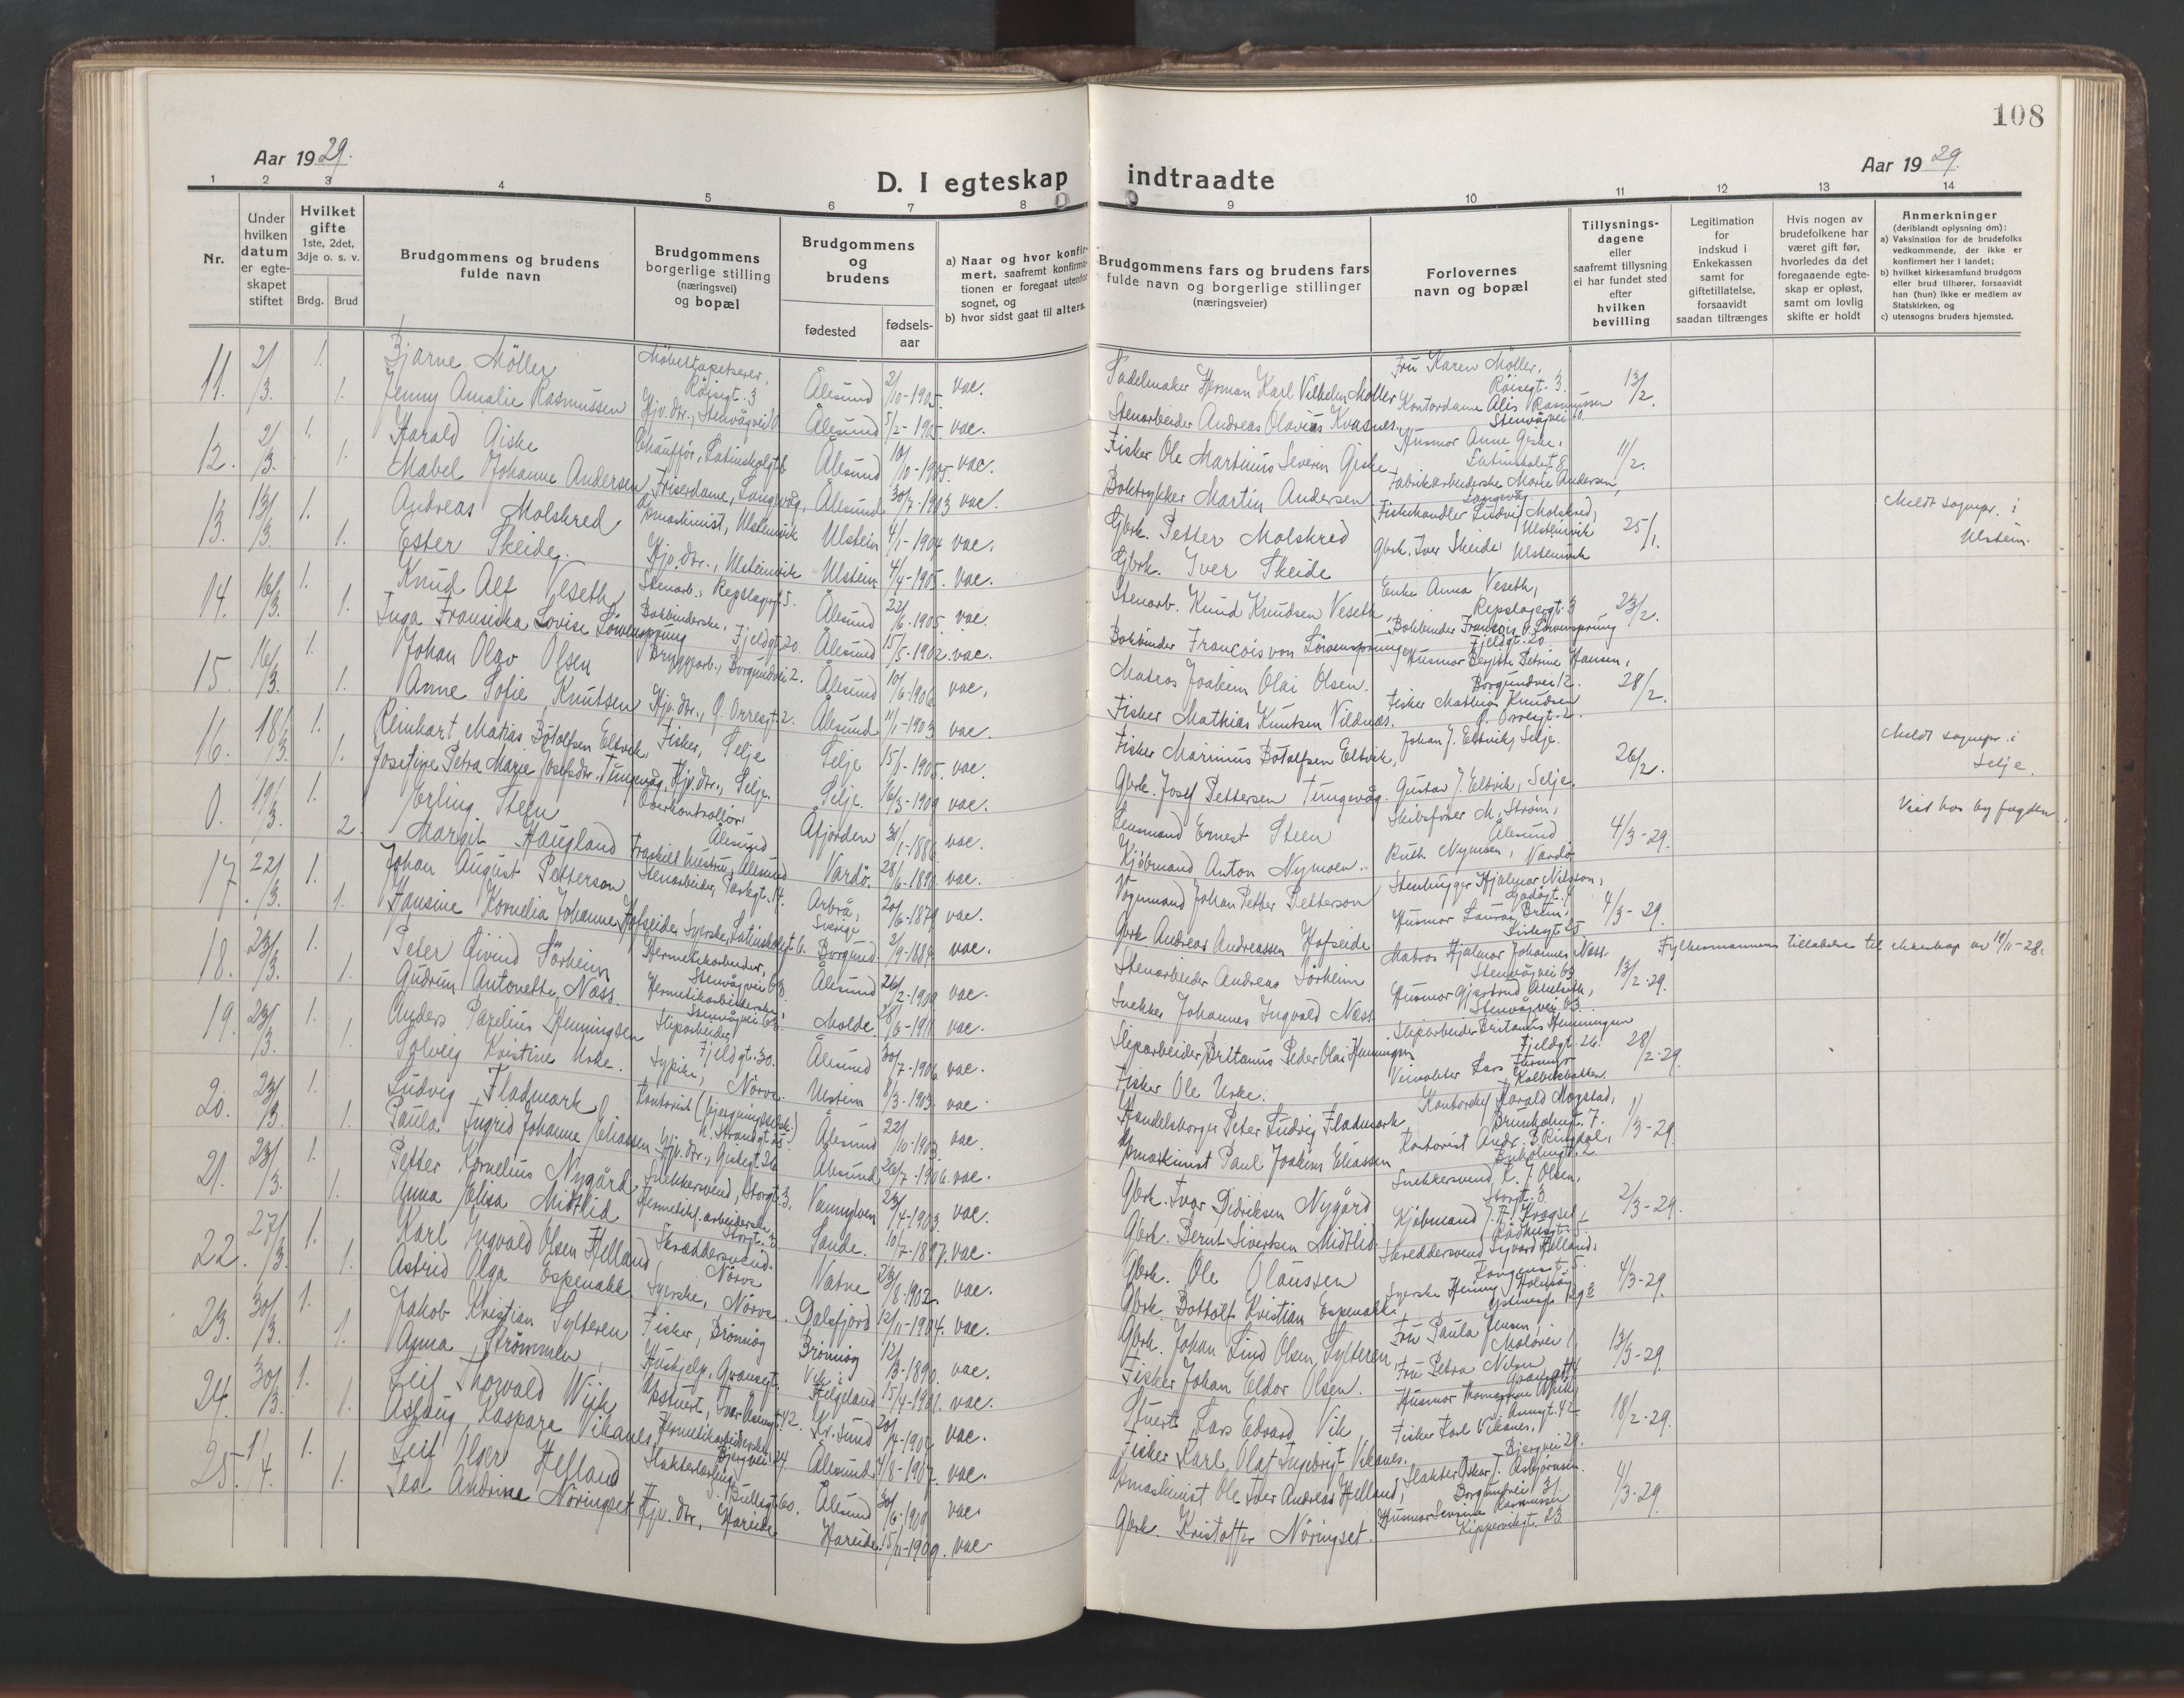 108
Aar 1929.
D. I egteskap indtraadte
Aar 1929.
1 2 3 4 5 6 7 8 9 10 11 12 13 14
Nr.
Under hvilken datum er egteskapet stiftet
Hvilket gifte 1ste, 2det, 3dje o. s. v.
Brdg. Brud
Brudgommens og brudens fulde navn
Brudgommens borgerlige stilling (næringsvei) og bopæl
Brudgommens og brudens
fødested
fødselsaar
a) Naar og hvor konfirmert, saafremt konfirmationen er foregaat utenfor sognet, og
b) hvor sidst gaat til alters.
Brudgommens fars og brudens fars fulde navn og borgerlige stillinger (næringsveier)
Forlovernes navn og bopæl
Tillysningsdagene eller saafremt tillysning ei har fundet sted efter hvilken bevilling
Legitimation for indskud i Enkekassen samt for giftetillatelse, forsaavidt saadan tiltrænges
Hvis nogen av brudefolkene har været gift før, hvorledes da det foregaaende egteskap er opløst, samt om lovlig skifte er holdt
Anmerkninger (deriblandt oplysning om):
a) Vaksination for de brudefolks vedkommende, der ikke er konfirmert her i landet;
b) hvilket kirkesamfund brudgom eller brud tilhører, forsaavidt han (hun) ikke er medlem av Statskirken, og
c) utensogns bruders hjemsted.
11. 2/3. 1. Bjarne Möller Möbeltapetserer, Röisgt. 3 Ålesund 2/10-1905. vac. Sadelmaker Herman Karl Vilhelm Möller Fru Karen Möller, Röisegt. 3. 13/2.
1. Jenny Amalie Rasmussen Hjv. dtr., Stenvågvei 10 Ålesund 5/2-1905. vac. Stenarbeider Andreas Olavius Kvasnes. Kontordame Alis Rasmussen Stenvågvei 10.
12. 2/3. 1. Harald Giske Chauffør, Latinskolgt. 8 Ålesund 10/10-1905. vac. Fisker Ole Martinus Severin Giske Husmor Anne Giske, Latinskolgt 8. 11/2.
1. Mabel Johanne Andersen Friserdame, Langevåg, Ålesund 30/7-1903 vac. Boktrykker Martin Andersen Fabrikarbeiderske Marie Andersen, Langevåg
13. 13/3. 1. Andreas Molskred Dpmaskinist, Ulsteinvik Ulstein 4/1-1904 vac. Gbrk. Petter Molskred Fiskehandler Ludvig Molskred, Ulsteinvik 25/1. Meldt sognepr. i Ulstein.
1. Ester Skeide. Hjv. dtr., Ulsteinvik Ulstein 4/4-1905. vac. Gbrk. Iver Skeide Gbrk. Iver Skeide Ulsteinvik
14. 16/3. 1. Knud Alf Veseth Stenarb., Repslagergt 5. Ålesund 22/6-1905. vac. Stenarb. Knud Knudsen Veseth Enke Anna Veseth, Repslagergt. 3 23/2.
1. Inga Fransiska Lovise Löwensprung Bokbinderske, Fjeldgt. 20. Ålesund 15/5-1902. vac. Bokbinder Francois von Löwensprung Bokbinder Francois v. Löwensprung Fjeldgt. 20
15. 16/3. 1. Johan Olav Olsen Bryggearb., Borgundvei 2. Ålesund 10/6-1906. vac. Matros Joakim Olai Olsen. Husmor Bergitte Petrine Hansen, Borgundvei 12. 28/2.
1. Anne Sofie Knutsen Hjv. dtr., Ö. Orresgt. 2. Ålesund 11/1-1903 vac. Fisker Mathias Knutsen Vildnes. Fisker Mathias Knudsen Ö. Orresgt. 2.
16. 18/3. 1. Reinhart Matias Botolfsen Eltvik, Fisker, Selje Selje 15/1-1905. vac. Fisker Marinius Botolfsen Eltvik, Johan J. Eltvik, Selje. 26/2. Meldt sognepr. i Selje.
1. Josefine Petra Marie Josefsdtr. Tungevåg, Hjv. dtr., Selje. Selje. 16/3-1909 vac. Gbrk. Josef Pettersen Tungevåg. Gustav J. Eltvik, Selje.
0. 19/3. 1. Erling Steen Overkontrollör Ålesund Åfjorden 31/1-1886. vac. Lensmand Ernest Steen Skibsförer M. Ström, Ålesund 4/3-29. Viet hos byfogden
2. Margit Haugland Fraskilt hustru, Ålesund Vardö. 28/6-1890. vac. Kjöbmand Anton Nymoen. Ruth Nymoen, Vardö
17. 22/3. 1. Johan August Petterson Stenarbeider, Parkgt. 14. Arbrå, Sverige 20/6-1879 vac. Vognmand Johan Petter Petterson Stenhugger Hjalmar Nilsson, 4/3-29.
1. Hansine Kornelia Johanne Hofseide Syerske, Latinskolegt 6. Borgund 2/9-1889 vac. Gbrk Andreas Andreassen Hofseide Husmor Laura Brem, Fiskegt 25.
18. 23/3. 1. Peter Öivind Sörheim Hermetikarbeider, Stenvågvei 68. Ålesund 26/2-1909 vac. Stenarbeider Andreas Sörheim Matros Hjalmar Johannes Næss. Stenvågvei 63 13/2-29. Fylkesmannens tillatelse til ekteskap av 19/11-28.
1. Gudrun Antonette Næss. Hermetikarbeiderske, Stenvågvei 63. Molde 28/6-1911 vac. Snekker Johannes Ingvald Næss Husmor Gjertrud Stenvågvei 63.
19. 23/3. 1. Anders Parelius Henningsen Sliparbeider, Fjeldgt. 30. Ålesund 30/7-1906 vac. Sliparbeider Britanus Peder Olai Henningsen Sliparbeider Britanus Henningsen Fjeldgt. 26. 28/2-29.
1. Solveig Kristine Urke. Sypike, Nörve. Ulstein 8/3-1903. vac. Fisker Ole Urke. Veivokter Lars Kolbeinsbakken.
20. 23/3. 1. Ludvig Fladmark Kontorist (bjergningsselsk.) N. Strandgt 25. Ålesund 22/10-1903. vac. Handelsborger Peter Ludvig Fladmark Kontorchef Harald Mogstad, Brunholmgt. 7. 1/3-29.
1. Paula Ingrid Johanne Eliassen Hjv. dtr., Giskegt 26 Ålesund 26/7-1906. vac. Dpmaskinist Paul Joakim Eliassen Kontorist Andr. B. Ringdal,
21. 23/3. 1. Petter Kornelius Nygård Snekkersvend, Storgt. 3. Vannylven 23/4-1903. vac. Gbrk. Ivar Didriksen Nygård Snekkersvend K. J. Olsen, Storgt. 3. 2/3-29.
1. Anna Elisa Midtlid Hermetikf. arbeiderske Storgt. 3. Sande. 10/7-1897. vac. Gbrk. Bernt Sivertsen Midtlid Kjöbmand J. A. Kragset, Rådhusgt. 5
22. 27/3. 1. Karl Ingvald Olsen Helland Skræddersvend. Nörve Vatne 23/8-1902. vac. Gbrk. Ole Olaussen Skreddersvend Sigvard Helland, Kongensgt. 5. 4/3-29.
1. Astrid Olga Espenakk Syerske, Nörve. Dalsfjord 12/11-1904. vac. Gbrk. Bottolf Kristian Espenakk. Syerske Henny
23. 30/3. 1. Jakob Kristian Sylteren Fisker, Brönnöy Brönnöy 12/3-1890. vac. Gbrk. Johan Lind Olsen Sylteren, Fru Paula Jensen, Moloveien 13/3-29.
1. Anna Strömmen, Hushjelp, Grensegt. Vik i Helgeland 15/4-1901. vac. Fisker Johan Eldor Olsen. Fru Petra Nilsen
24. 30/3. 1. Leif Thorvald Wiik Stuert, Ivar Aasensgt. 42. Kr. sund 20/7-1904 vac. Stuert Lars Edvard Vik Husmor Thomasine Wiik, Aasensgt. 42 18/2-29.
1. Asbjörg Kaspara Vikanes, Hermetikarbeiderske Bjergvei 24 Ålesund 4/8-1907. vac. Fisker Karl Olaf Ingebrigt Vikanes. Fisker Karl Vikanes, Bjergvei 29.
25. 1/4. 1. Leif Iver Helland Slakterlærling Bullsgt. 60. Ålesund 30/6-1909 vac. Dpmaskinist Ole Iver Andreas Helland, Slakter Oskar J. Asbjörnsen. Borgundvei 31. 4/3-29.
1. Tea Andrine Nöringset Hjv. dtr., Hareide Hareide. 15/11-1909. vac. Gbrk. Kristoffer Nöringset. Husmor Severine Rasmussen Kippervikgt. 23.